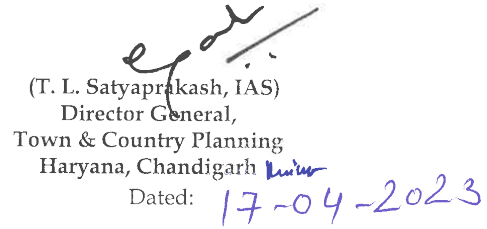 (T. L. Satyaprakash, IAS)
Director General,
Town & Country Planning
Haryana, Chandigarh
Dated: 17-04-2023